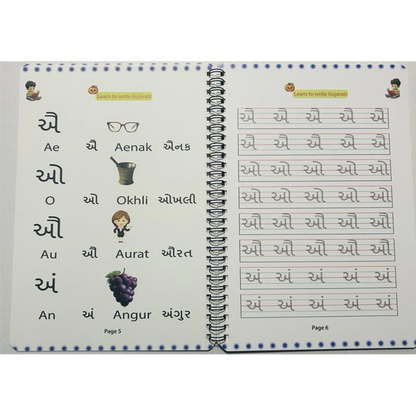 Learn to write Gujarati
ઐ
Ae ઐ Aenak ઐનક
ઓ
O ઓ Okhli ઓખલી
ઔ
Au ઔ Aurat ઔરત
અં
An અં Angur અંગુર
Page 5
Learn to write Gujarati
ઐ ઐ ઐ ઐ ઐ
ઐ ઐ ઐ ઐ ઐ
ઓ ઓ ઓ ઓ ઓ
ઓ ઓ ઓ ઓ ઓ
ઔ ઔ ઔ ઔ ઔ
ઔ ઔ ઔ ઔ ઔ
અં અં અં અં અં
અં અં અં અં અં
Page 6